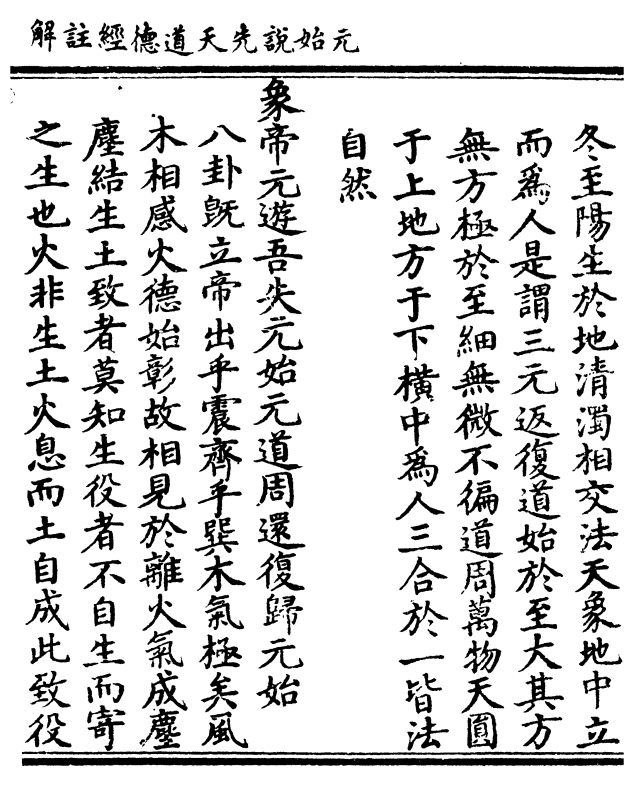 元始說先天道德經註解
冬至陽生於地清濁相交法天象地中立
而爲人是謂三元返復道始於至大其方
無方極於至細無微不徧道周萬物天圓
于上地方于下橫中爲人三合於一皆法
自然
象帝元遊吾失元始元道周還復歸元始
八卦旣立帝出乎震齊乎巽木氣極矣風
木相感火德始彰故相見於離火氣成塵
塵結生土致者莫知生役者不自生而寄
之生也火非生土火息而土自成此致役